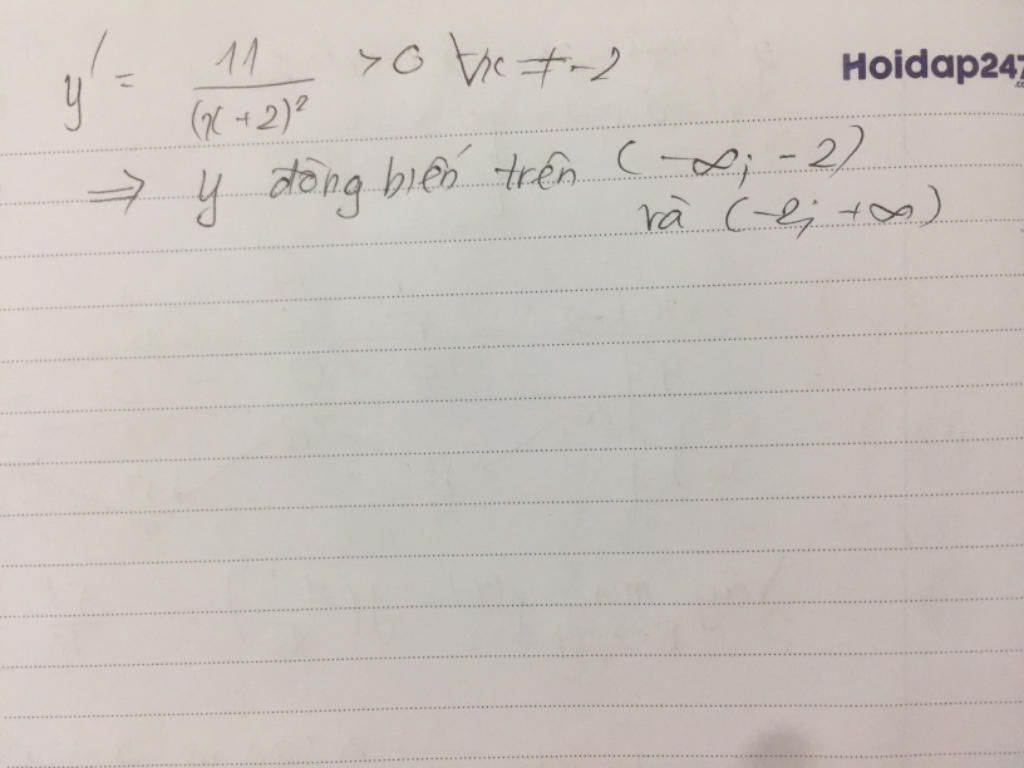 y' = 11/(x+2)² > 0 ∀x ≠ -2
Hoidap247
.com
⇒ y đồng biến trên (-∞; -2)
và (-2; +∞)